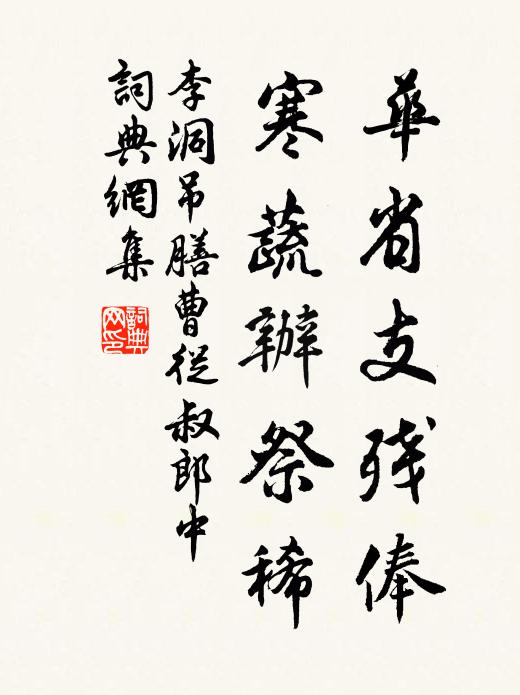 華省支残俸
寒蔬辦祭稀
李洞吊膳曹從叔郎中
詞典網集
詞典网印